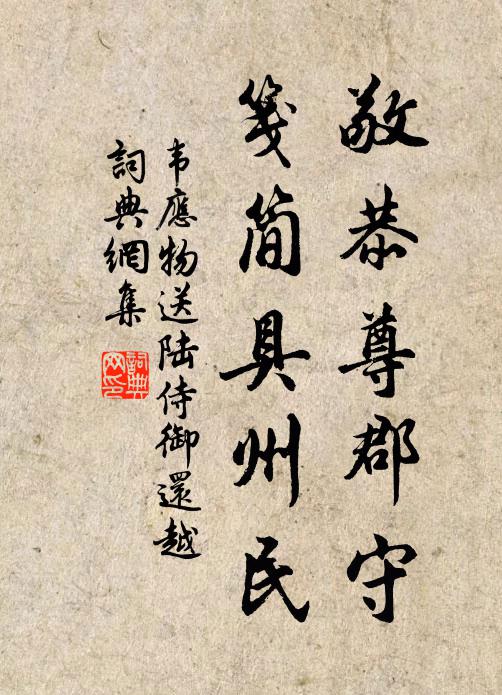 敬恭尊郡守
箋簡具州民
韦應物送陆侍御還越
詞典網集
詞典网印